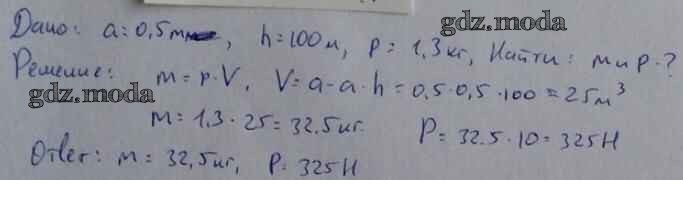 gdz.moda
Дано: a=0,5м, h=100м, ρ=1,3кг, Найти: m и P-?
Решение: m=ρ·V, V=a-a·h=0,5·0,5·100=25м³
gdz.moda
m=1,3·25=32,5кг. P=32.5·10=325Н
Ответ: m=32,5кг, P=325Н